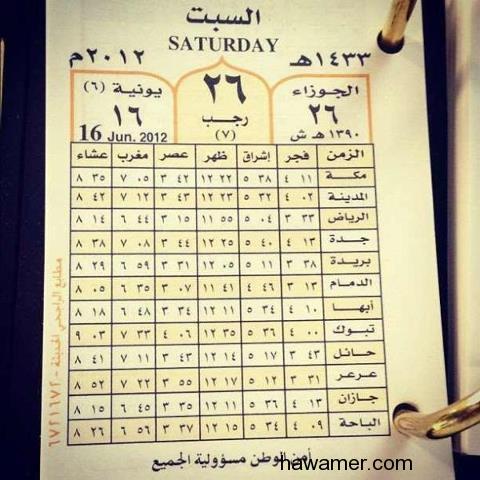 السبت
SATURDAY
١٤٣٣هـ ٢٠١٢م
الجوزاء ٢٦ يونية (٦)
٢٦ رجب ١٦
١٣٩٠ هـ ش (٧) 16 Jun. 2012
الزمن فجر إشراق ظهر عصر مغرب عشاء
مكة ٤ ١١ ٥ ٣٨ ١٢ ٢٢ ٣ ٤٢ ٧ ٠٥ ٨ ٣٥
المدينة ٤ ٠٢ ٥ ٣٤ ١٢ ٢٣ ٣ ٤٣ ٧ ١٢ ٨ ٤٢
الرياض ٣ ٣٣ ٥ ٠٤ ١١ ٥٥ ٣ ١٥ ٦ ٤٤ ٨ ١٤
جدة ٤ ١٣ ٥ ٤٠ ١٢ ٢٥ ٣ ٤٤ ٧ ٠٨ ٨ ٣٨
بريدة ٣ ٣٨ ٥ ١١ ١٢ ٠٥ ٣ ٣١ ٦ ٥٩ ٨ ٢٩
الدمام ٣ ١٣ ٤ ٤٦ ١١ ٤١ ٣ ٠٧ ٦ ٣٥ ٨ ٠٥
أبها ٤ ١٠ ٥ ٣٤ ١٢ ١١ ٣ ٣٤ ٦ ٤٨ ٨ ١٨
تبوك ٤ ٠٠ ٥ ٣٦ ١٢ ٣٥ ٤ ٠٦ ٧ ٣٣ ٩ ٠٣
حائل ٣ ٤٣ ٥ ١٧ ١٢ ١٥ ٣ ٤٣ ٧ ١١ ٨ ٤١
عرعر ٣ ٣١ ٥ ١٢ ١٢ ١٧ ٣ ٥٥ ٧ ٢٢ ٨ ٥٢
جازان ٤ ١٣ ٥ ٣٦ ١٢ ١١ ٣ ٣٥ ٦ ٤٥ ٨ ١٥
الباحة ٤ ٠٩ ٥ ٣٤ ١٢ ١٥ ٣ ٣٧ ٦ ٥٦ ٨ ٢٦
أمن الوطن مسؤولية الجميع
مطابع الراجحي الحديثة - ٦٧٢١٦٧٢
hawamer.com